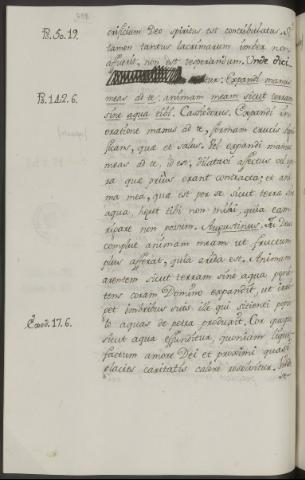 Ps. 50. 19.
crificium Deo spiritus est contribulatus. Si
tamen tantus lacrimarum imber non
affuerit, non est desperandum. Unde dici
tur. Expandi manus
Ps. 142. 6.
meas ad te: animam meam sicut terram
sine aqua tibi. Casiodorus. Expandi in
oratione manus ad te, formam crucis signi
ficans, quae et salus. Vel expandi manus
meas ad te, id est, dilatavi affectus vel ope
ra que prius erant contracta; et ani
ma mea, quae est per se sicut terra sine
aqua, tibi non mihi, quia eam
rigare non possum. Augustinus. Ut Deus
compluat animam meam ut fructum
plus afferat, quia arida est. Animam
arentem sicut terram sine aqua pœni
tens coram Domino expandit, ut irri
get imbribus suis ille qui sitienti popu
Exod. 17. 6.
lo aquas de petra produxit. Cor quoque
sicut aqua effunditur, quoniam lique
factum amore Dei et proximi quasi
glacies caritatis calore resolvitur.